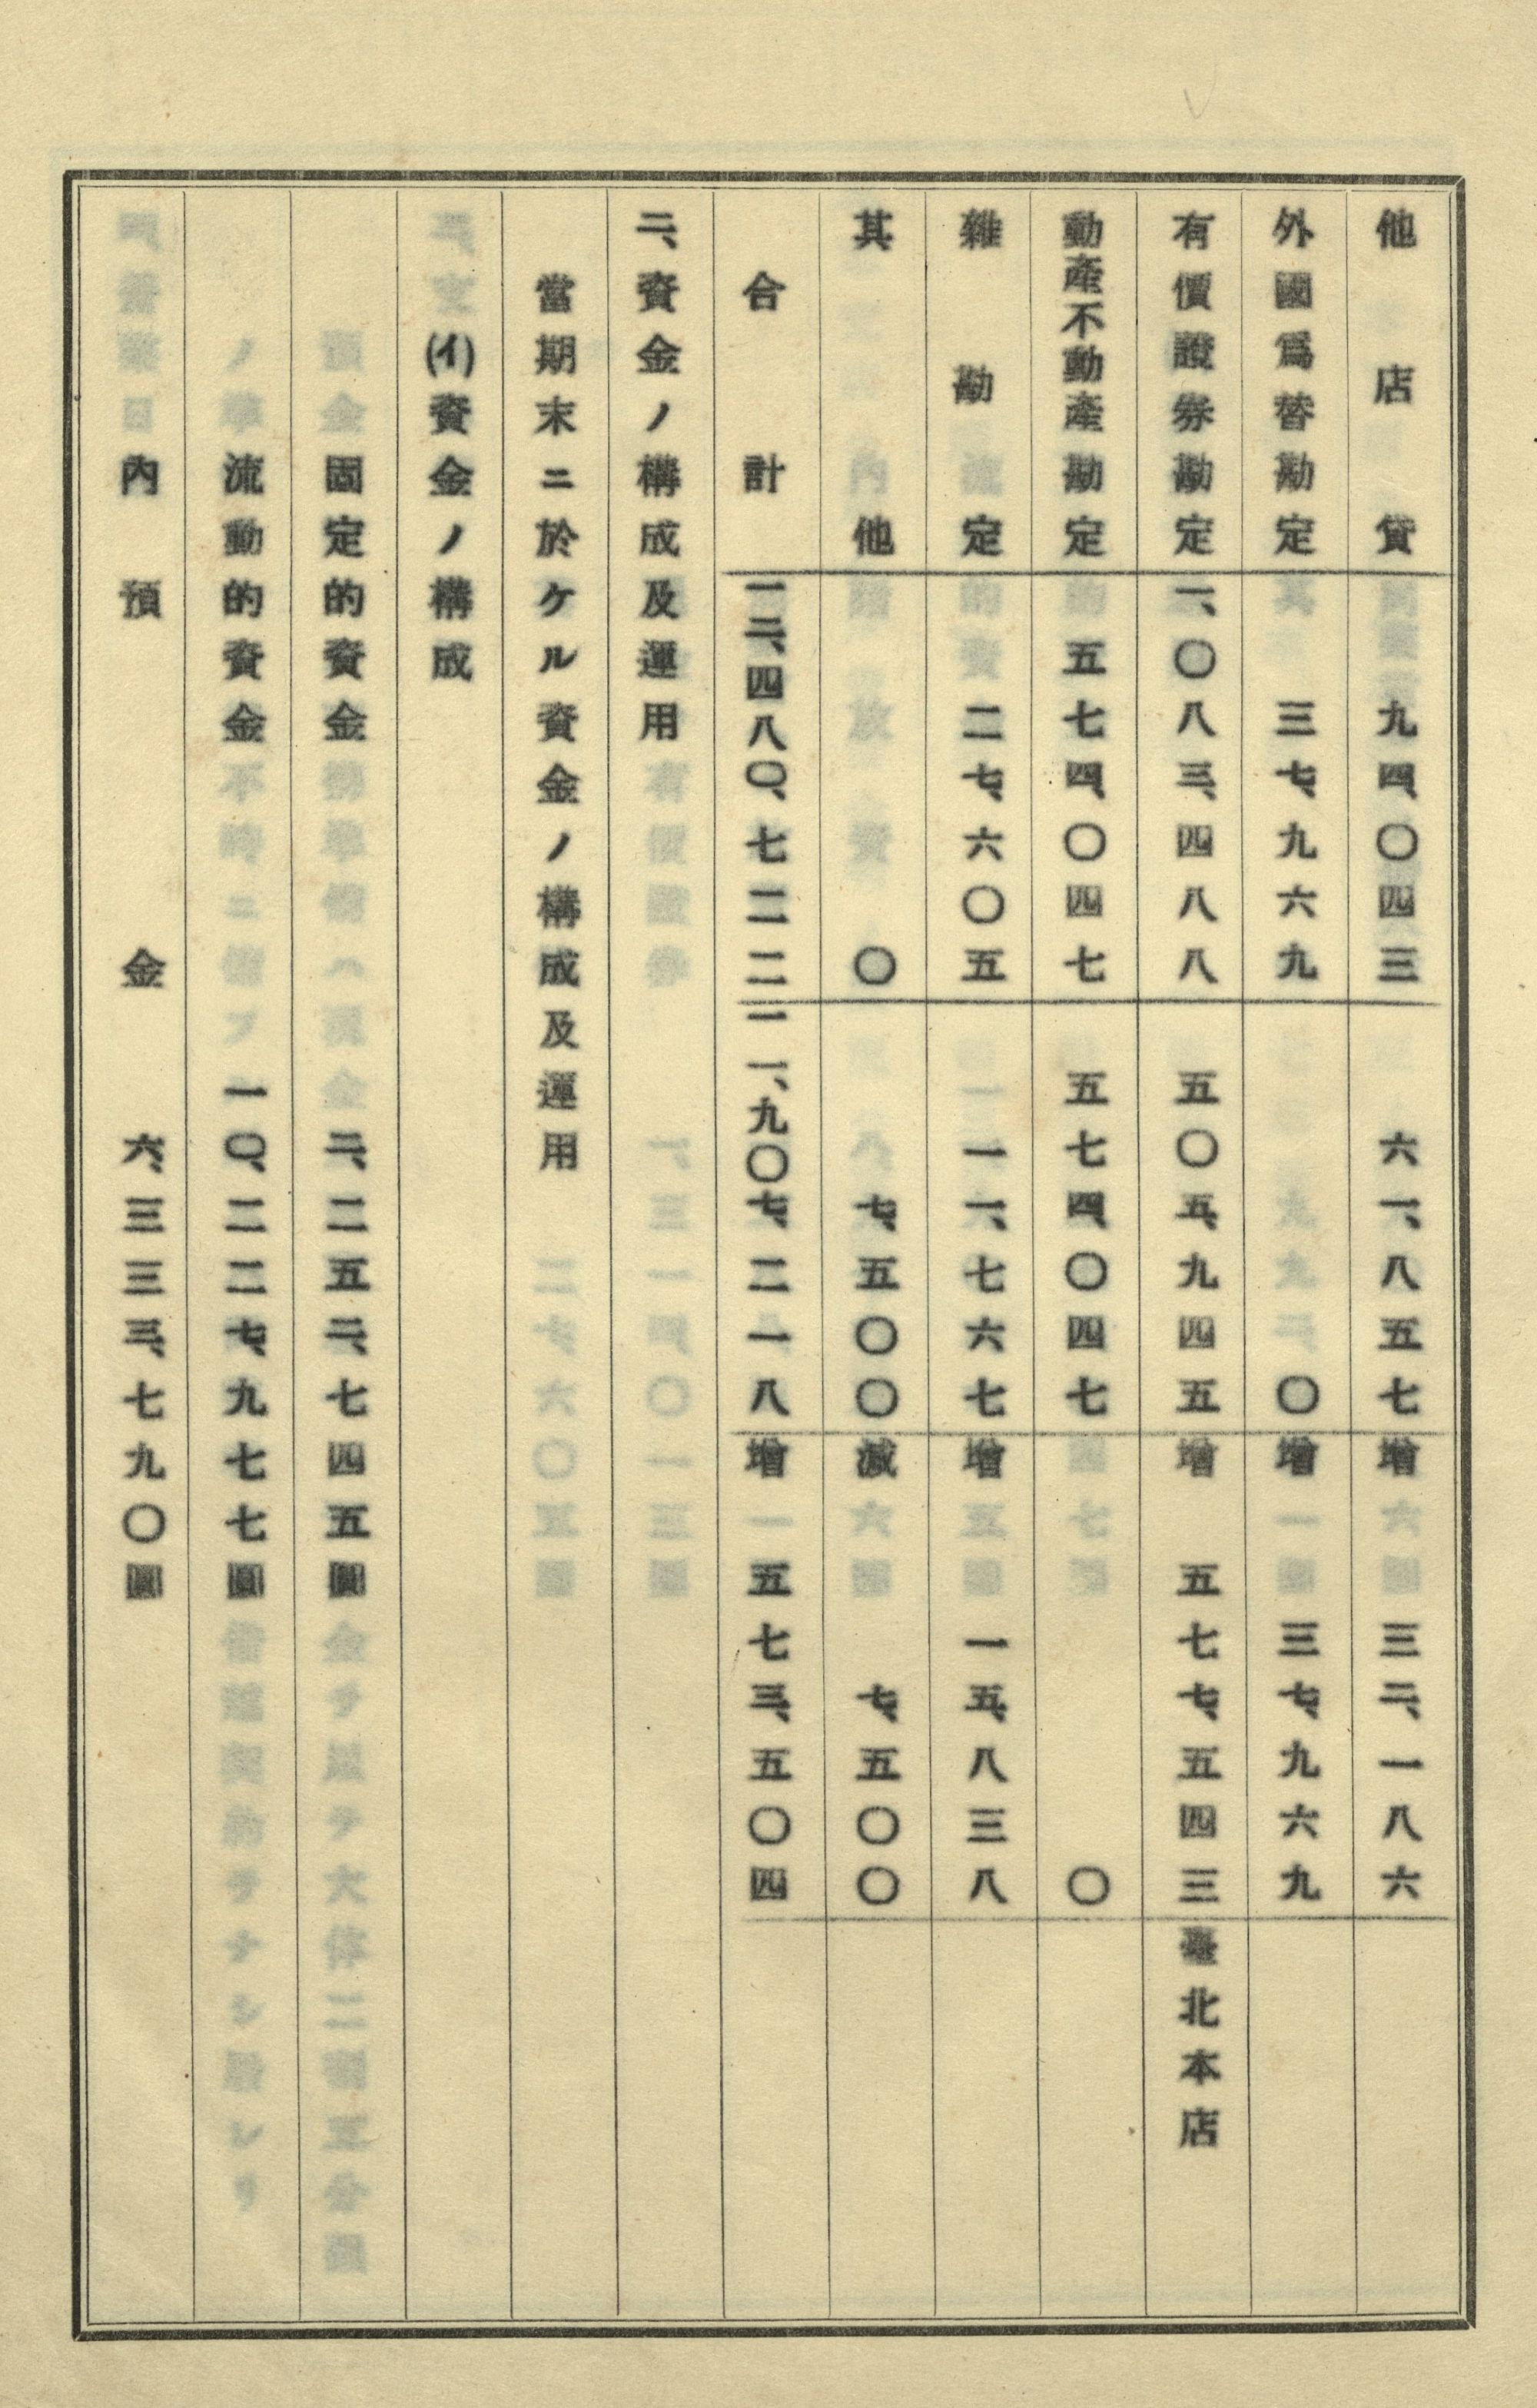 他店貸 九四、〇四三 六一、八五七 增 三二、一八六
外國爲替勘定 三七、九六九 〇 增 三七、九六九
有價證券勘定 一、〇八三、四八八 五〇五、九四五 增 五七七、五四三 臺北本店
動產不動產勘定 五七四、〇四七 五七四、〇四七 〇
雜勘定 二七、六〇五 一一、七六七 增 一五、八三八
其他 〇 七、五〇〇 減 七、五〇〇
合計 一二、四八〇、七二二 一一、九〇七、二一八 增 五七三、五〇四
二、資金ノ構成及運用
當期末ニ於ケル資金ノ構成及運用
(イ)資金ノ構成
固定的資金 二、二五二、七四五圓
流動的資金 一〇、二二七、九七七圓
內預金 六、三三三、七九〇圓